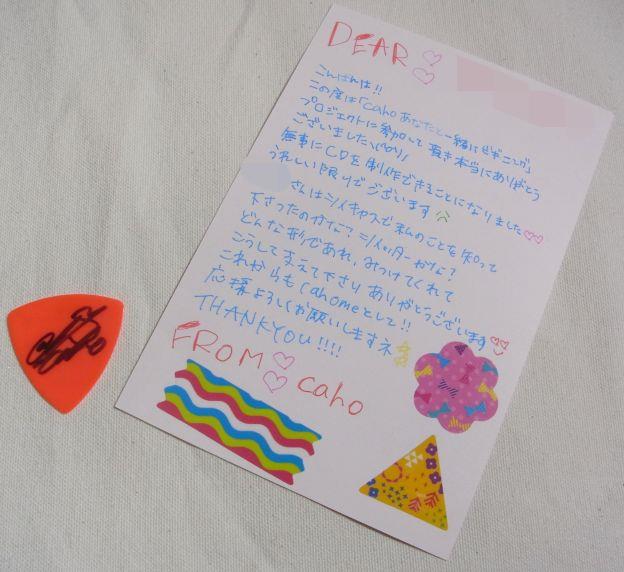 DEAR
こんばんは!!
この度は「cahoあなたと一緒にビギニング」
プロジェクトに参加して頂き本当にありがとう
ございました\(^o^)/
無事にCDを制作できることになりました♡♡
うれしい限りでございます
さんはツイキャスで私のことを知って
下さったのかな?ツイッターかな?
どんな形であれ、みつけてくれて
こうして支えて下さりありがとうございます
これからもcahomeとして!!
応援よろしくお願いしますネ
THANKYOU!!!!
FROM
caho
caho